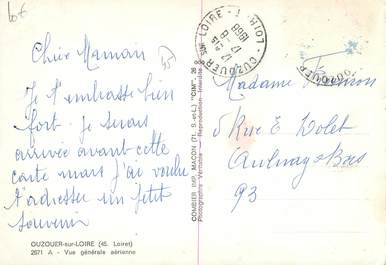 Lot
Chère Maman
45
Je t'embrasse bien
fort. Je serais
arrivée avant cette
carte mais j'ai voulu
t'adresser un petit
souvenir
OUZOUER-sur-LOIRE (45. Loiret)
2671 A - Vue générale aérienne
COMBIER IMP. MACON (71. S.-et-L.) "CIM"
Photographie Véritable - Reproduction Interdite
OUZOUER SUR LOIRE
LOIRET
17 H
17 - 8
1968
OUZOUER
Madame
5 Rue E Dolet
Aulnay s Bois
93